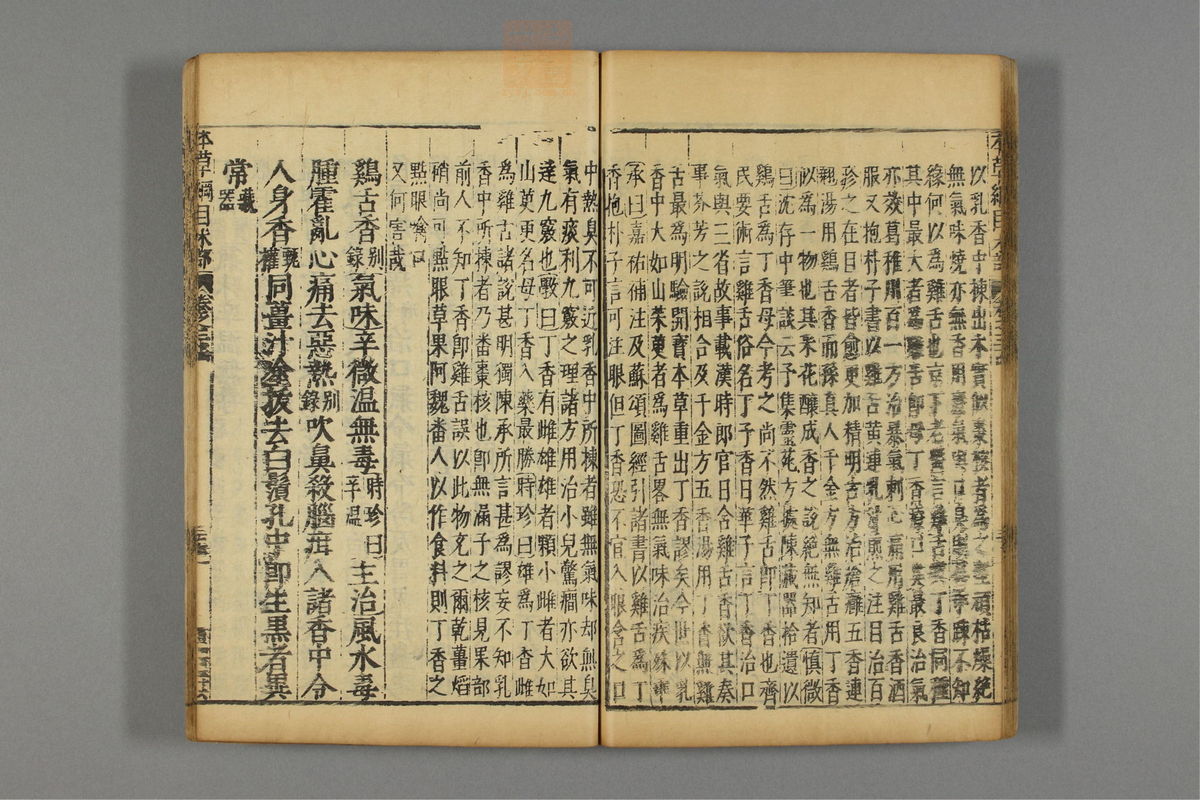 以乳香中揀出木實似棗核者為之堅頑枯燥絕
無氣味燒亦無香用療氣與口臭則甚乖疎不知
緣何以為雞舌也京下老醫言雞舌與丁香同種
其中最大者為雞舌即母丁香療口臭最良治氣
亦效葛稚川百一方治暴氣刺心痛用雞舌香酒
服又抱朴子書以雞舌黃連乳汁煎之注目治百
疹之在目者皆愈更加精明古方治瘡癰五香連
翹湯用雞舌香而孫真人千金方無雞舌用丁香
似為一物也其采花釀成香之說絕無知者慎微
曰沈存中筆談云予集靈苑方據陳藏器拾遺以
雞舌為丁香母今考之尚不然雞舌即丁香也齊
民要術言雞舌俗名丁子香日華子言丁香治口
氣與三省故事載漢時郎官日含雞舌香欲其奏
事芬芳之說相合及千金方五香湯用丁香無雞
舌最為明驗開寶本草重出丁香謬矣今世以乳
香中大如山茱萸者為雞舌畧無氣味治疾殊乖
承曰嘉祐補注及蘇頌圖經引諸書以雞舌為丁
香抱朴子言可注眼但丁香恐不宜入眼含之口
中熱臭不可近乳香中所揀者雖無氣味却無臭
氣有淡利九竅之理諸方用治小兒驚癇亦欲其
達九竅也斅曰丁香有雌雄雄者顆小雌者大如
山萸更名母丁香入藥最勝時珍曰雄為丁香雌
為雞舌諸說甚明獨陳承所言甚為謬妄不知乳
香中所揀者乃番棗核也即無漏子之核見果部
前人不知丁香即雞舌誤以此物充之爾乾薑焰
硝尚可點眼草果阿魏番人以作食料則丁香之
點眼噙口
又何害哉
雞舌香别錄氣味辛微温無毒時珍曰辛温主治風水毒
腫霍亂心痛去惡熱别錄吹鼻殺腦疳入諸香中令
人身香甄權同薑汁塗拔去白鬚孔中即生黑者異
常藏器
本草綱目木部
本草綱目木部